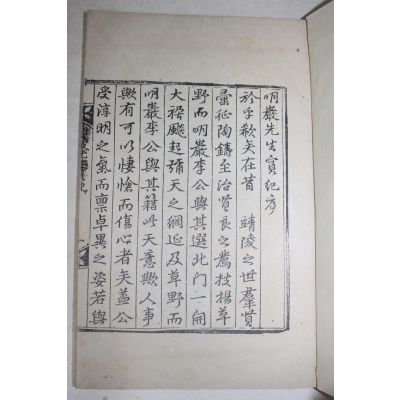 明巖先生實紀序
於乎欷矣在昔 靖陵之世羣賢
彙征陶鑄至治賢良之薦技揚草
野而明巖李公與其選北門一開
大禍颷起彌天之網延及草野而
明巖李公與其籍此天意歟人事
歟有可以悽愴而傷心者矣盖公
受淳明之氣而禀卓異之姿若與